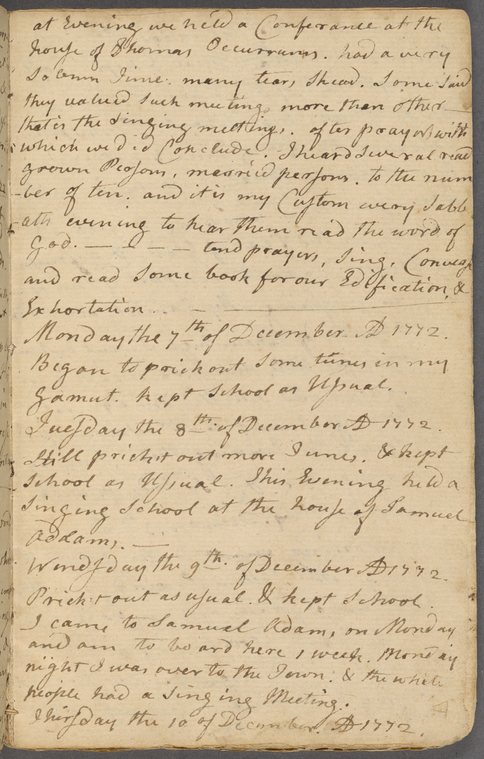 at Evening we held a Conferance at the
house of Thomas Occurrums. had a very
Solemn Time. many tears Shead. Some Said
they valued Such meeting more than other
that is the Singing meetings. after prayer with
which we did Conclude. I heard Several read
grown Persons, married persons. to the num
ber of ten. and it is my Custom every Sabb
ath evening to hear them read the word of
God. — — — and prayers, Sing, Convers
and read Some book for our Edification, &
Exhortation. —
Monday the 7th of December. AD 1772.
Began to prick out Some tunes in my
Gamut. kept School as Usual.
Tuesday the 8th of December AD 1772.
Still prickt out more Tunes. & kept
School as Usual. This Evening held a
Singing School at the house of Samuel
Addams. —
Wendsday the 9th of December AD 1772.
Prickt out as usual & kept School.
I came to Samuel Adams, on Monday
and am to board here 1 week. Monday
night I was over to the Town. & the white
people had a Singing Meeting.
Thirsday the 10 of December. AD 1772.